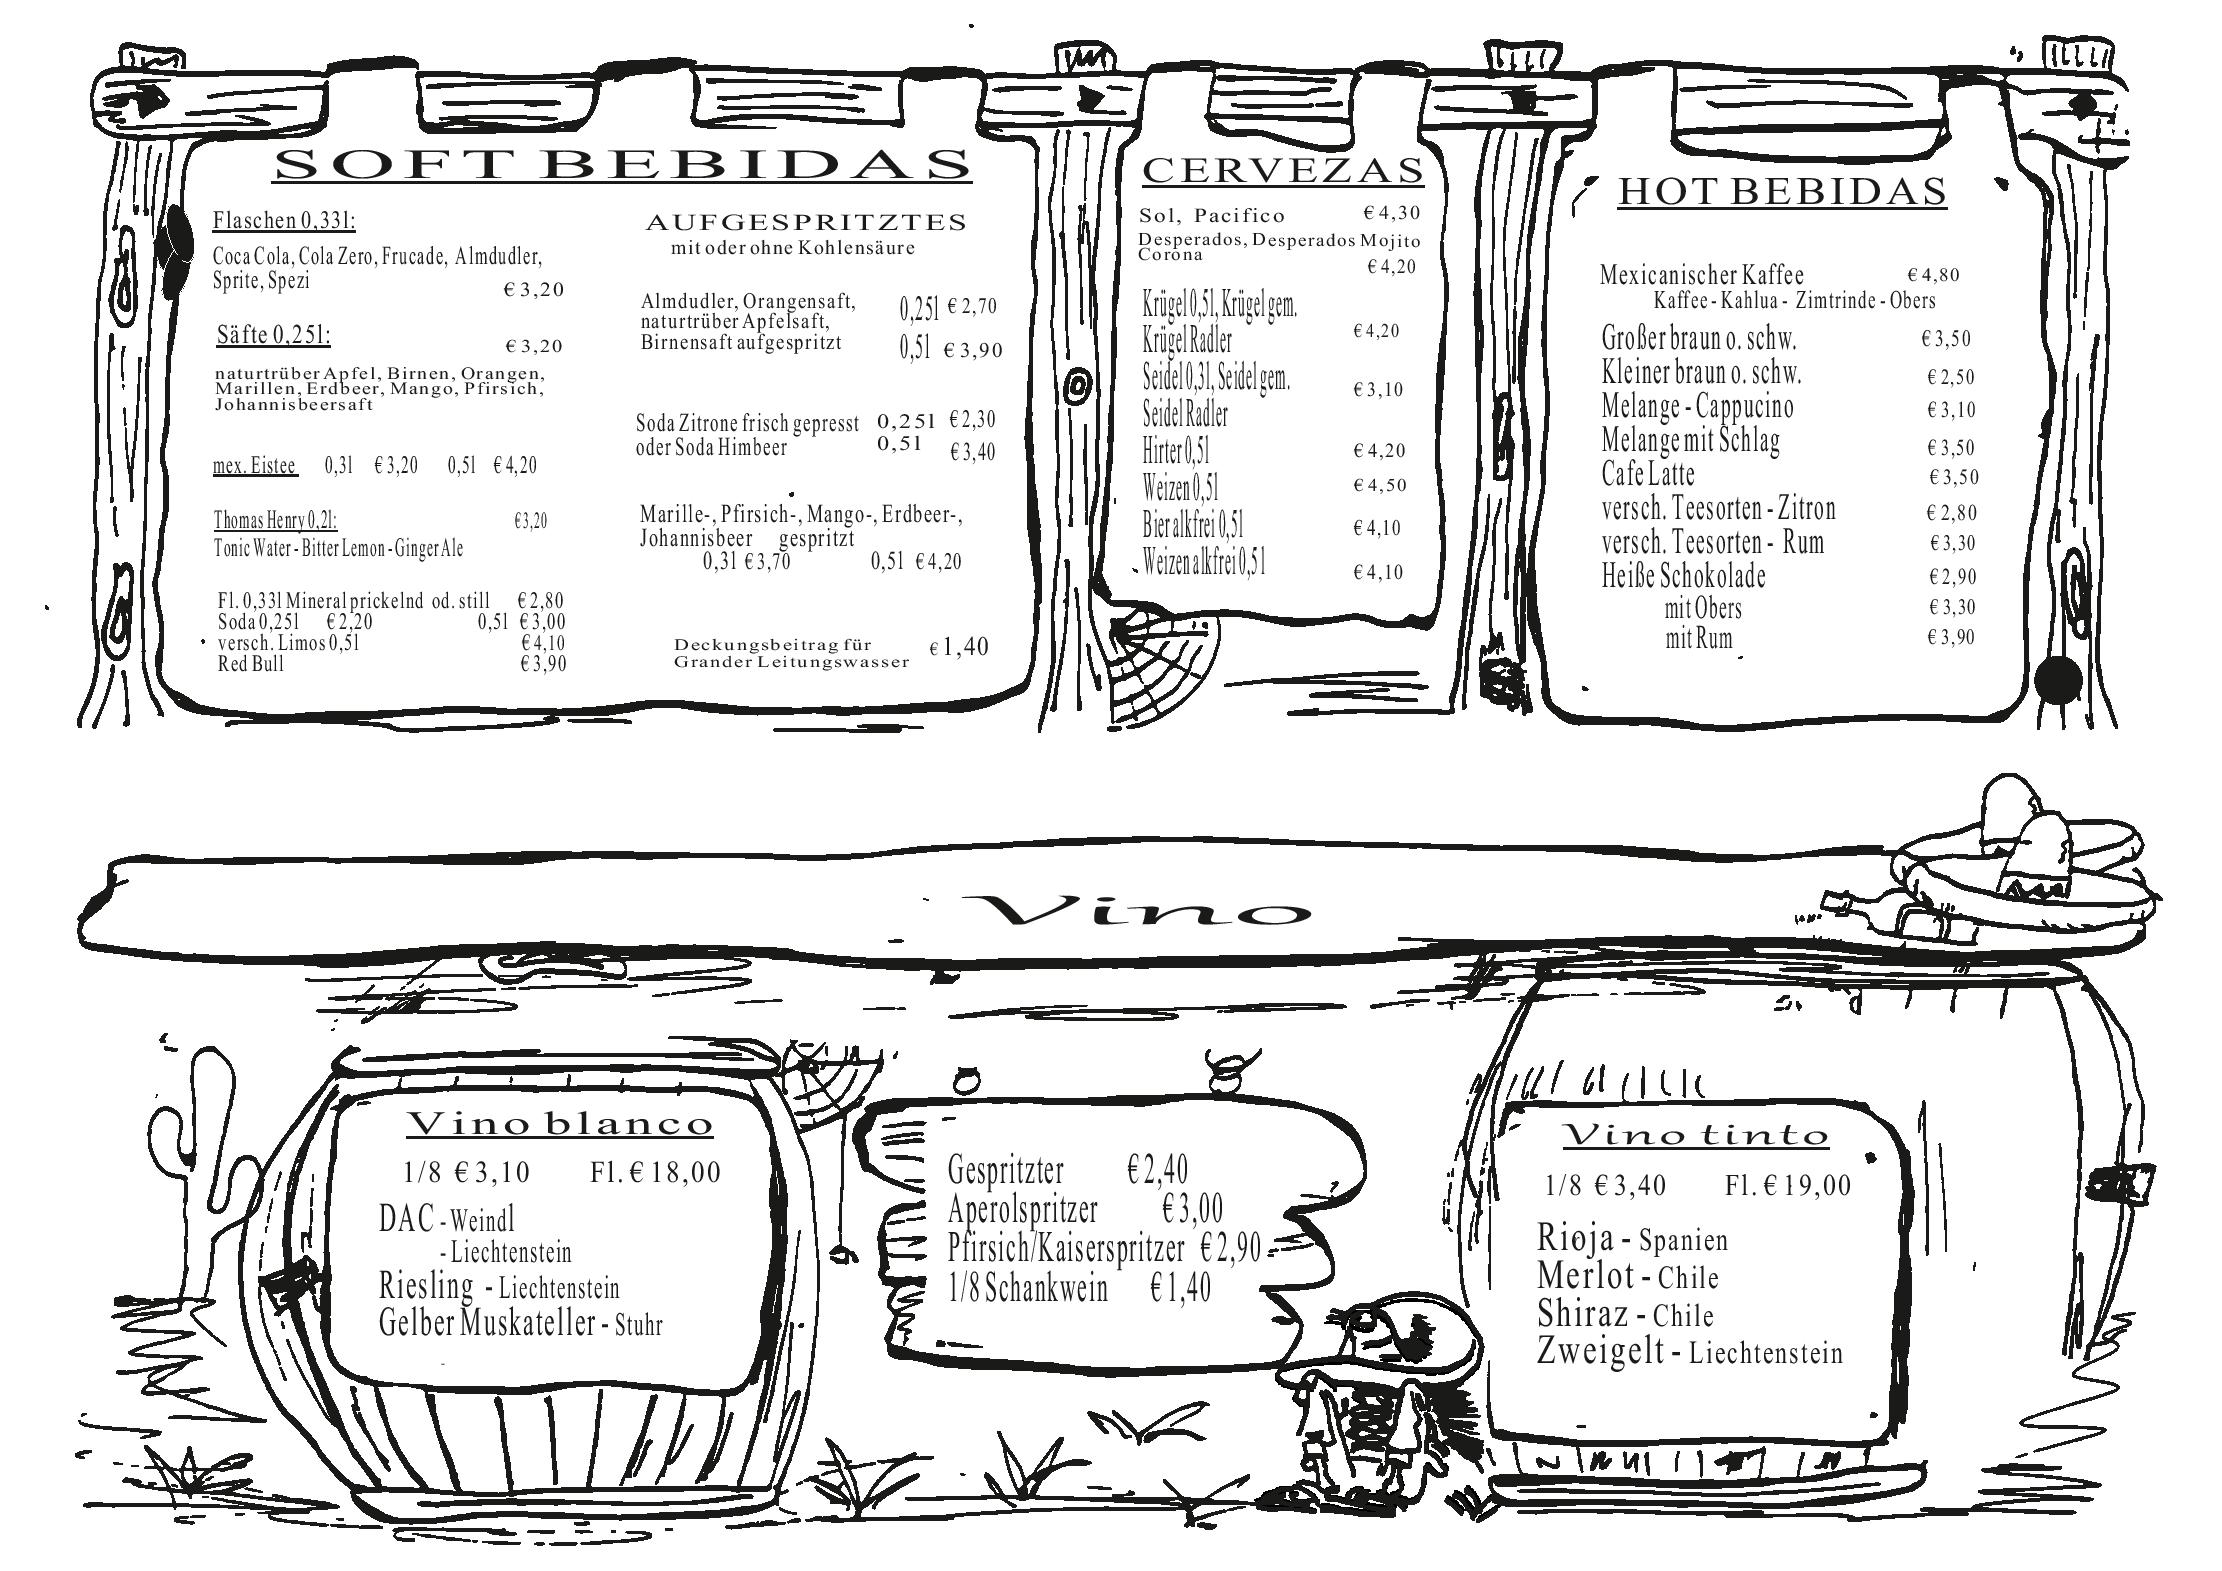 SOFT BEBIDAS
Flaschen 0,33l:
Coca Cola, Cola Zero, Frucade, Almdudler,
Sprite, Spezi
€ 3,20
Säfte 0,25l:
€ 3,20
naturtrüber Apfel, Birnen, Orangen,
Marillen, Erdbeer, Mango, Pfirsich,
Johannisbeersaft
mex. Eistee 0,3l € 3,20 0,5l € 4,20
Thomas Henry 0,2l: € 3,20
Tonic Water - Bitter Lemon - Ginger Ale
Fl. 0,33l Mineral prickelnd od. still € 2,80
Soda 0,25l € 2,20 0,5l € 3,00
versch. Limos 0,5l € 4,10
Red Bull € 3,90
AUFGESPRITZTES
mit oder ohne Kohlensäure
Almdudler, Orangensaft, 0,25l € 2,70
naturtrüber Apfelsaft,
Birnensaft aufgespritzt 0,5l € 3,90
Soda Zitrone frisch gepresst 0,25l € 2,30
oder Soda Himbeer 0,5l € 3,40
Marille-, Pfirsich-, Mango-, Erdbeer-,
Johannisbeer gespritzt
0,3l € 3,70 0,5l € 4,20
Deckungsbeitrag für
Grander Leitungswasser € 1,40
CERVEZAS
Sol, Pacifico € 4,30
Desperados, Desperados Mojito
Corona
€ 4,20
Krügel 0,5l, Krügel gem.
Krügel Radler € 4,20
Seidel 0,3l, Seidel gem.
€ 3,10
Seidel Radler
Hirter 0,5l € 4,20
Weizen 0,5l € 4,50
Bier alkfrei 0,5l € 4,10
Weizen alkfrei 0,5l € 4,10
HOT BEBIDAS
Mexicanischer Kaffee € 4,80
Kaffee - Kahlua - Zimtrinde - Obers
Großer braun o. schw. € 3,50
Kleiner braun o. schw. € 2,50
Melange - Cappucino € 3,10
Melange mit Schlag € 3,50
Cafe Latte € 3,50
versch. Teesorten - Zitron € 2,80
versch. Teesorten - Rum € 3,30
Heiße Schokolade € 2,90
mit Obers € 3,30
mit Rum € 3,90
Vino
Vino blanco
1/8 € 3,10 Fl. € 18,00
DAC - Weindl
- Liechtenstein
Riesling - Liechtenstein
Gelber Muskateller - Stuhr
Gespritzter € 2,40
Aperolspritzer € 3,00
Pfirsich/Kaiserspritzer € 2,90
1/8 Schankwein € 1,40
Vino tinto
1/8 € 3,40 Fl. € 19,00
Rioja - Spanien
Merlot - Chile
Shiraz - Chile
Zweigelt - Liechtenstein